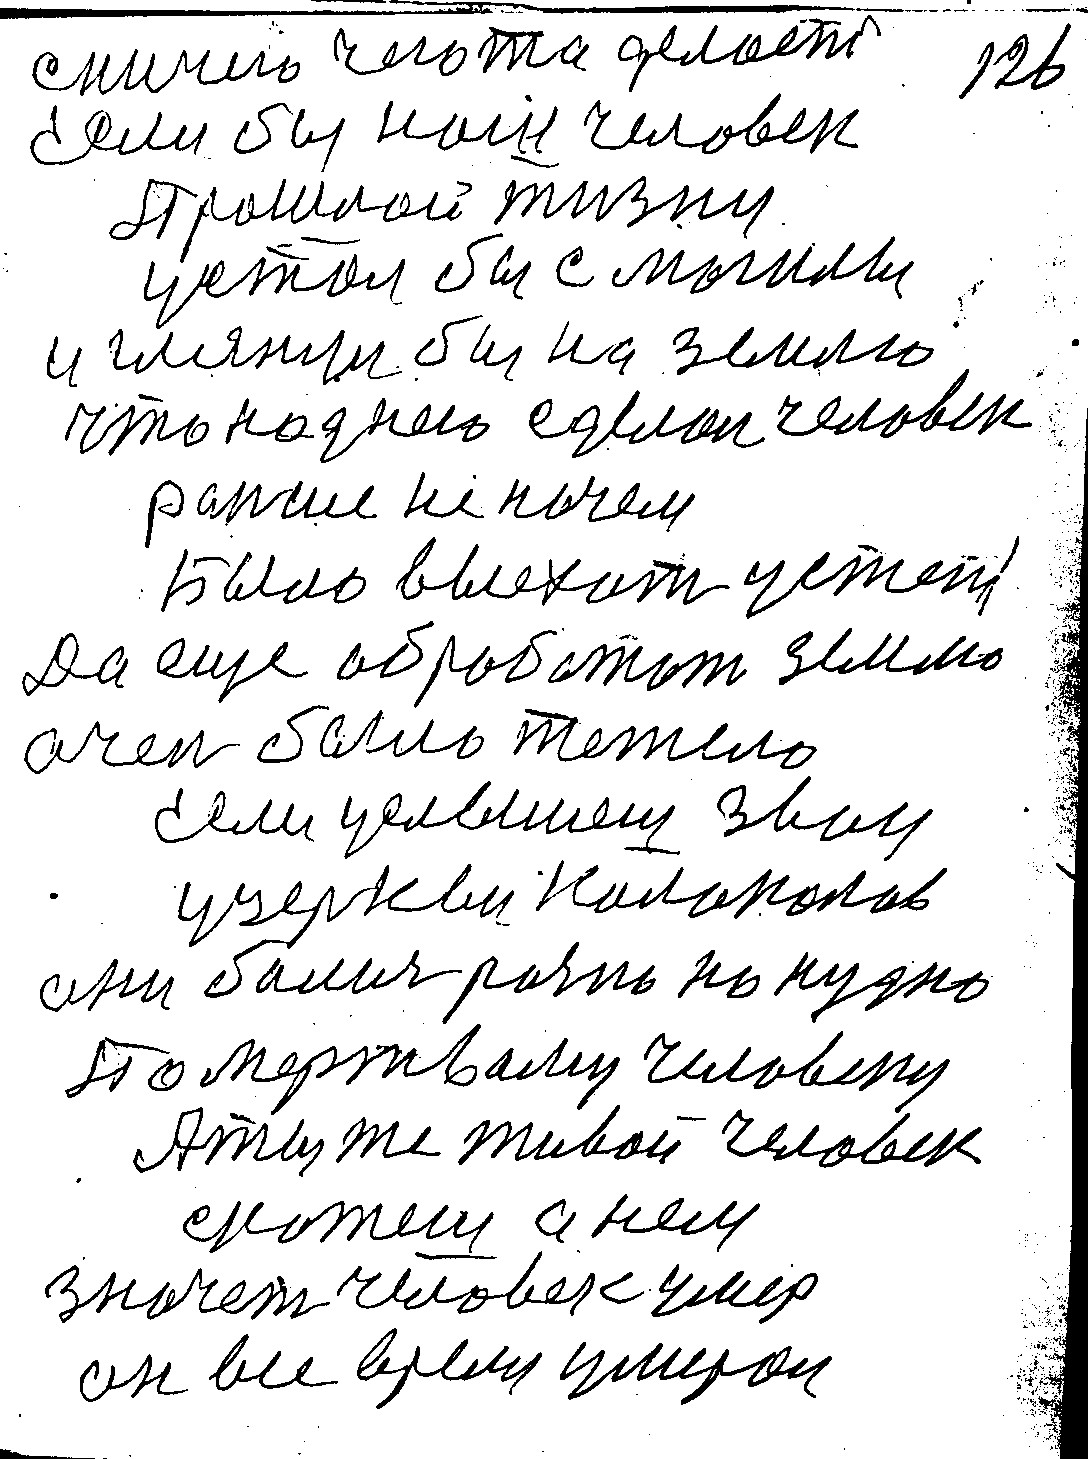 сничего чегота делоеть 126
Если бы наш человек
прошлой жизни
устол бы с могилы
и глянул бы на землю
что надного сделол человек
ранше не начем
Было выехат устепь
Да еще обработат землю
очен было тежело
Если услышеш звон
узеркви Колоколов
они болшч разно но нудно
по мертвому человеку
А ты же живой человек
скажеш а нем
значет человек умер
он все времи умерал